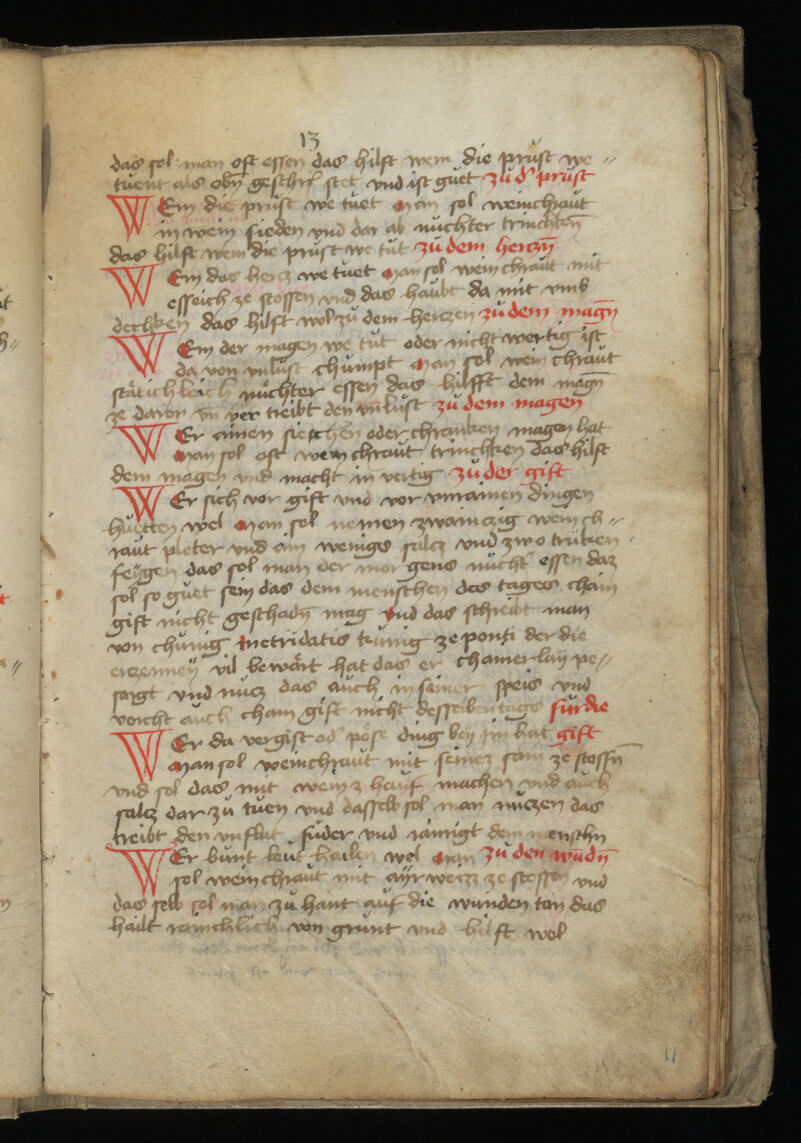 13
das sol man oft essen das hilft wem die prust we〃
tuent als obn̄ geschrỉ stet vnd ist guet zu d' prust
WEm die prust we tuet Man sol weinchraut
in wein sieden vnd dar ab nuchter trinchten̄
das hilft wem die prust we tut zu dem herczn̄
WEm das hercz we tuet Man sol weinchraut mit
esseich ze stossen vnd das haubt da mit vmb
dechken das hilft wol zu dem herczen zu dem magn̄
WEm der magen we tut oder nicht wertig ist
da von vnlust chumpt Man sol wein chraut
stätichleich nuchter essen das hilfft dem magn̄
ze daron vn̄ ver treibt den vnlust zu dem magen
WEr ainen siechen oder chranken magen hat
Man sol oft wein chraut trinchken das hilft
dem magen vnd macht in vertig zu der gift
WEr sich vor gift vnd vor vnrainen dingen
huetten wel Man sol nemen zwainczig wein ch〃
raut pleter vnd ain weniges salcz vnd zwo truken
feygen das sol man der morgens nucht' essen daz
sol so guet sein das dem menschen des tages chain
gift nicht geschadn̄ mag Vnd das schreibt man
von chunig Metridatis kunig ze ponti der die
erczenney vil bewärt hat das er chamerlay pe〃
sargt vnd nucz das auch in seiner speis vnd
vorcht auch cham gift nicht desselben tags fur die
WEr da vergift od' pöse ding bey im hat gift
Man sol weinchraut mit seinez sam ze stossn̄
vnd sol das mit wein z hauf machen vnd auch
salcz dar zu tuen vnd dasselb sol man nuczen das
treibt den vnflat fuder vnd rainigt dem menschn
WEr bunt leut hailen wel Man zu den wūdn̄
sol weinchraut mit ayr weizz ze stossen vnd
das selb sol man zu hant auf die wunden ton das
hailt rainchlich von grunt vnd hilft wol
11